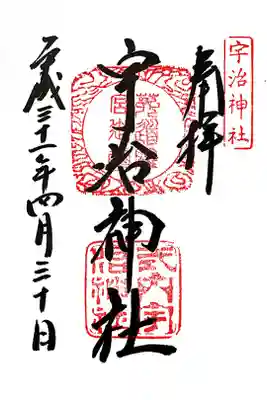 宇治神社
奉拝
宇治神社
平成三十一年四月三十日